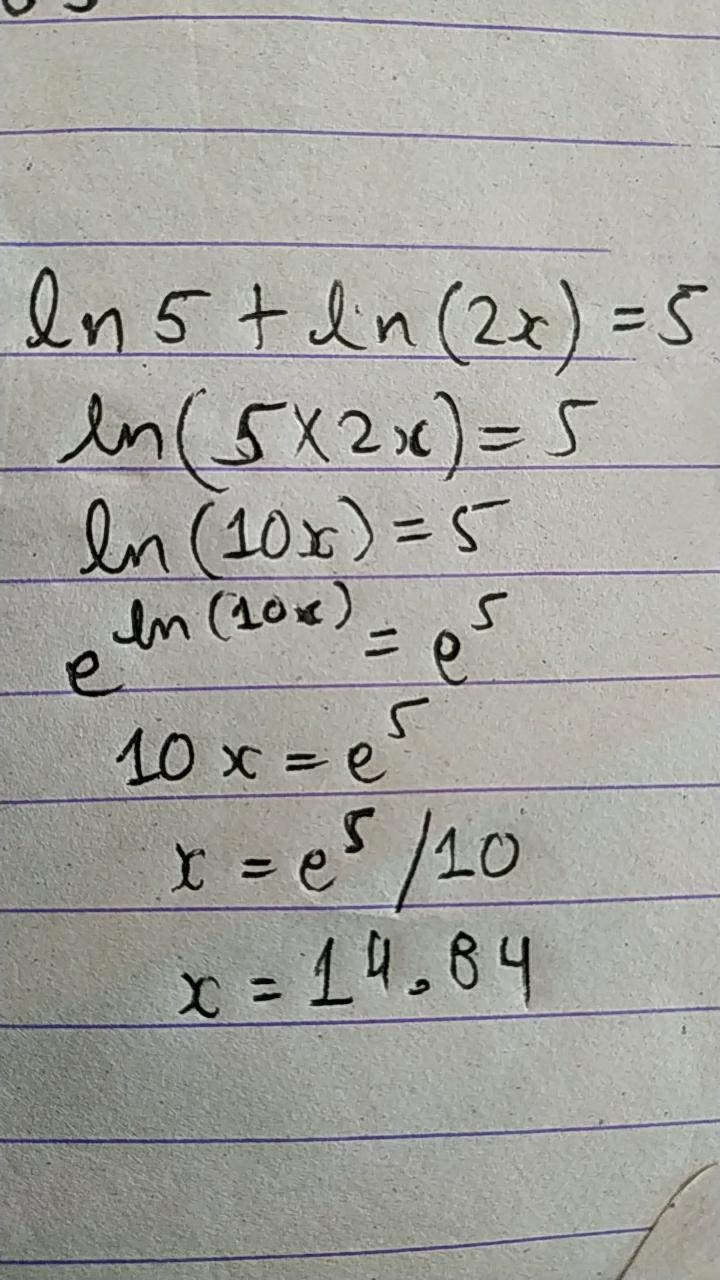 ln 5 + ln (2x) = 5
ln (5×2x) = 5
ln (10x) = 5
e^ln (10x) = e^5
10x = e^5
x = e^5 /10
x = 14.84